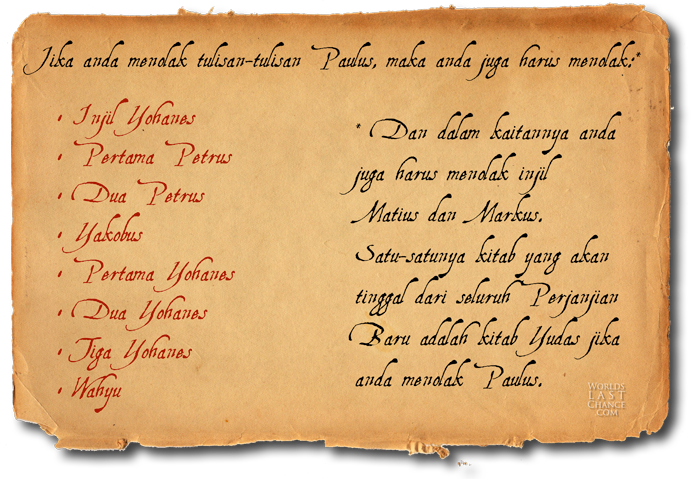 Jika anda menolak tulisan-tulisan Paulus, maka anda juga harus menolak:*
• Injil Yohanes
• Pertama Petrus
• Dua Petrus
• Yakobus
• Pertama Yohanes
• Dua Yohanes
• Tiga Yohanes
• Wahyu
* Dan dalam kaitannya anda
juga harus menolak injil
Matius dan Markus.
Satu-satunya kitab yang akan
tinggal dari seluruh Perjanjian
Baru adalah kitab Yudas jika
anda menolak Paulus.
WORLDS
LAST
CHANCE
.COM